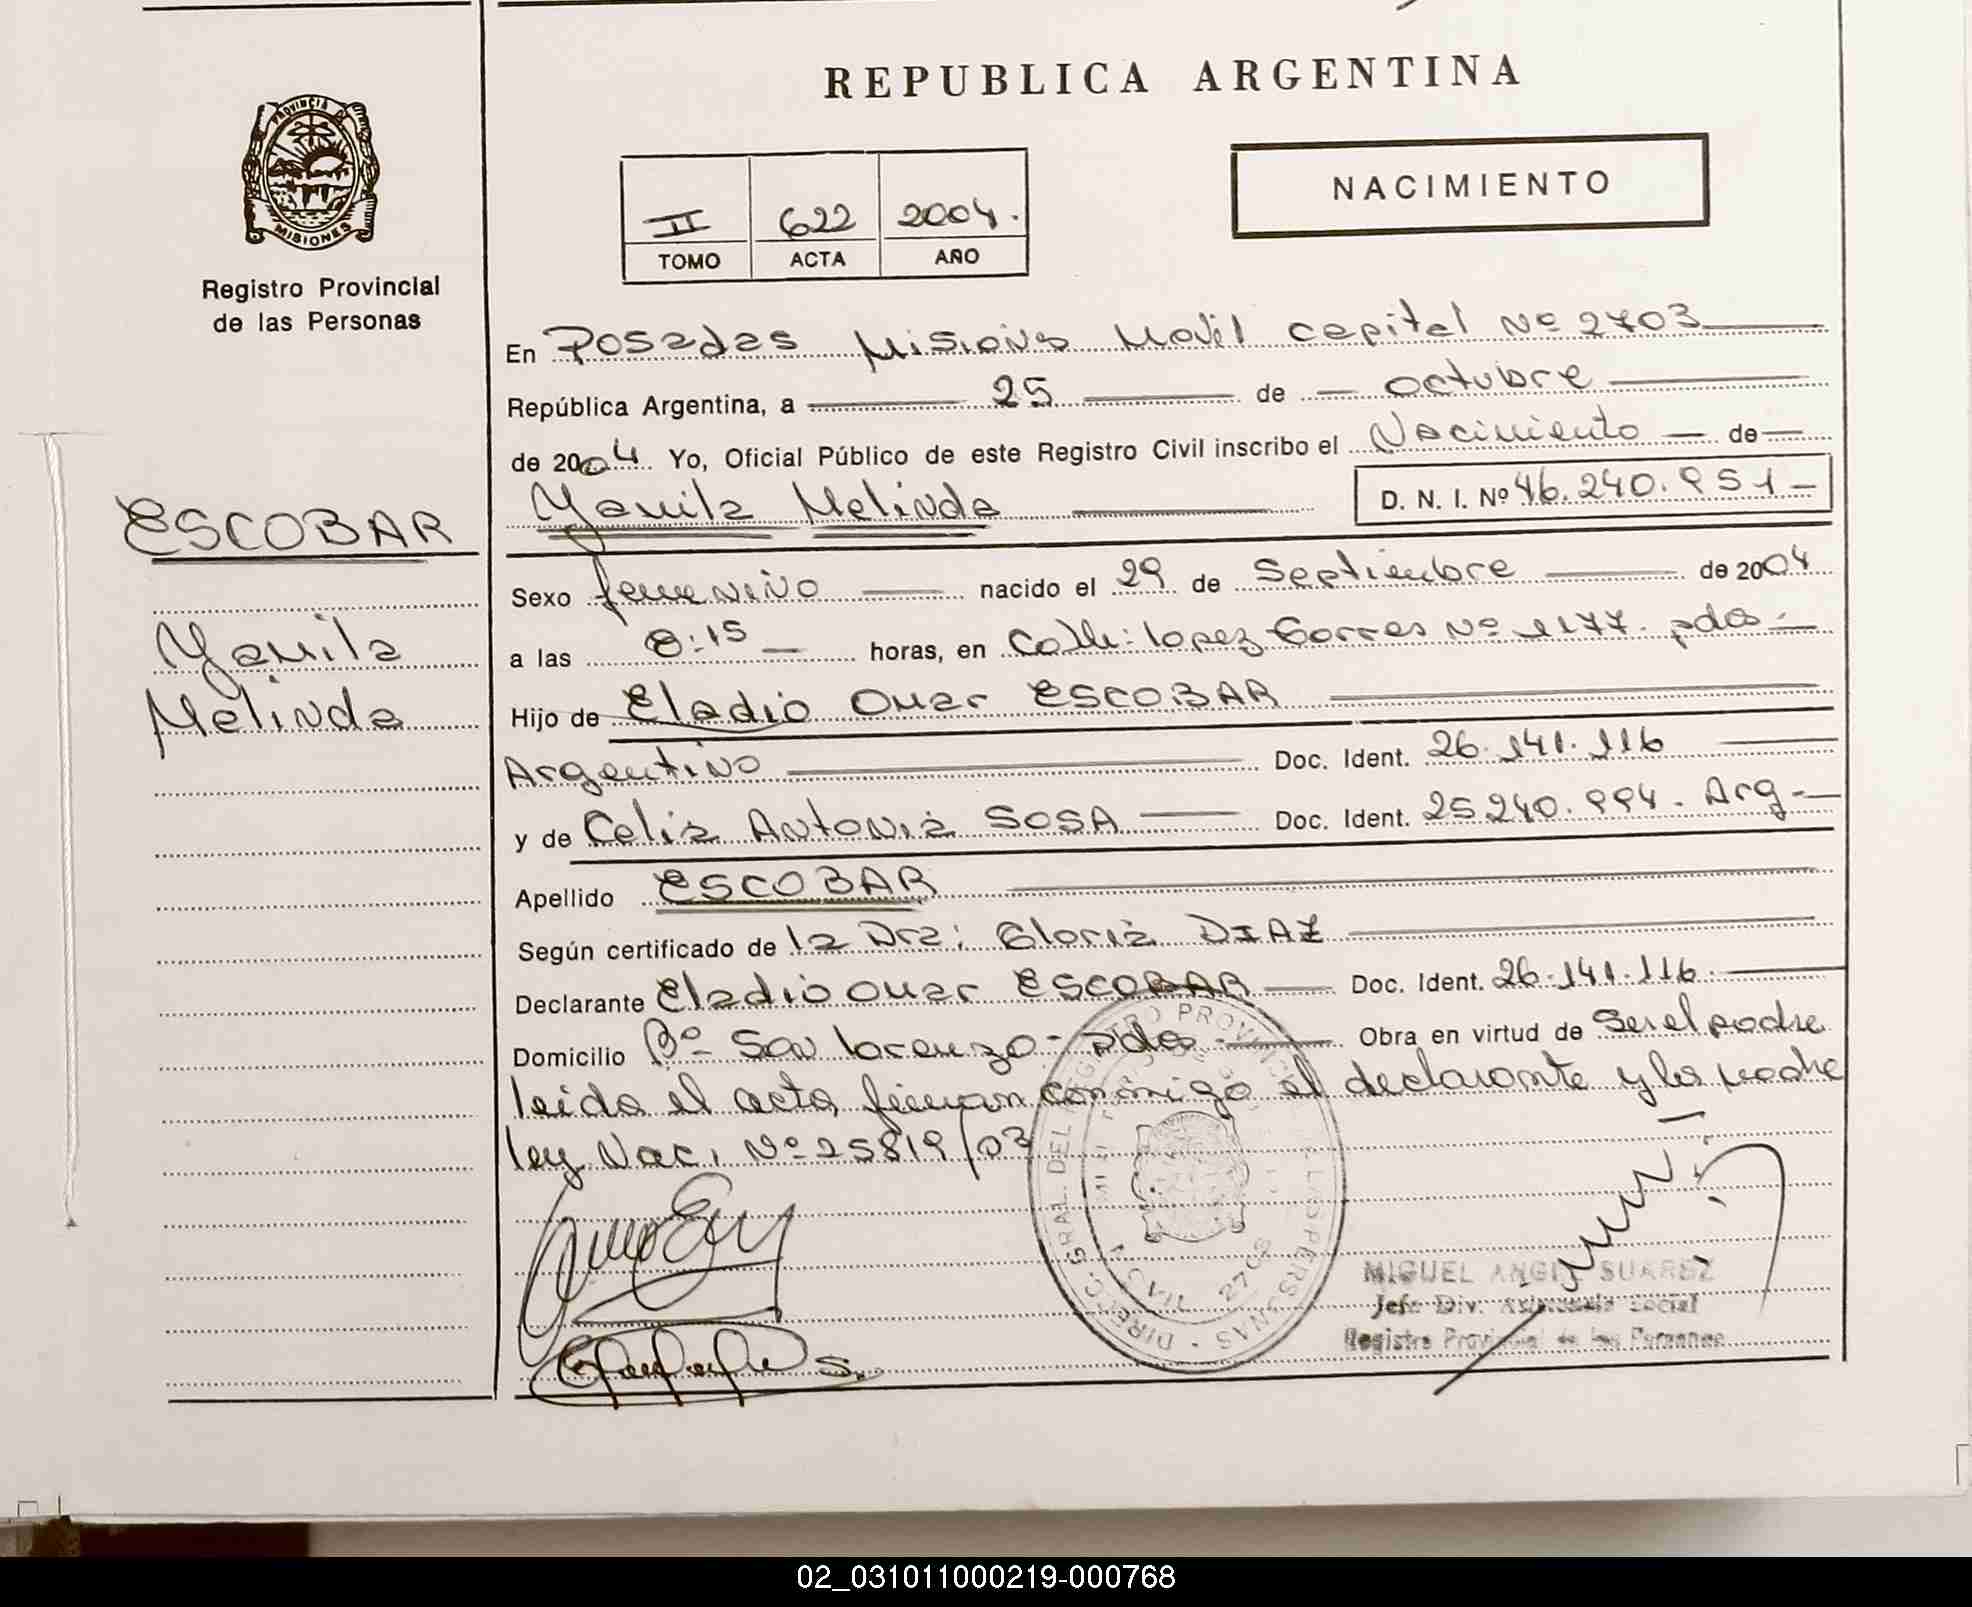 REPUBLICA ARGENTINA
PROVINCIA DE
MISIONES
Registro Provincial
de las Personas
NACIMIENTO
II 622 2004.
TOMO ACTA AÑO
En Posadas Misiones Movil capital Nº 2703
República Argentina, a 25 de octubre
de 2004 Yo, Oficial Público de este Registro Civil inscribo el Nacimiento de
Yamila Melinda D. N. I. Nº 46.240.951
ESCOBAR
Yamila
Melinda
Sexo femenino nacido el 29 de Septiembre de 2004
a las 8:15 horas, en Calle: lopez torres Nº 1177. pdas.
Hijo de Eladio Omar ESCOBAR
Argentino Doc. Ident. 26.141.116
y de Celia Antonia SOSA Doc. Ident. 25.240.994. Arg.
Apellido ESCOBAR
Según certificado de la Dra: Gloria DIAZ
Declarante Eladio Omar ESCOBAR Doc. Ident. 26.141.116.
Domicilio Bº San lorenzo - pdas. Obra en virtud de Ser el padre
leida el acta, firman conmigo el declarante y la madre
ley Nac. Nº 25819/03
DIRECC. GRAL. DEL REGISTRO PROVINCIAL DE LAS PERSONAS
2703
MIGUEL ANGEL SUAREZ
Jefe Div. Asistencia Social
Registro Provincial de las Personas
02_031011000219-000768